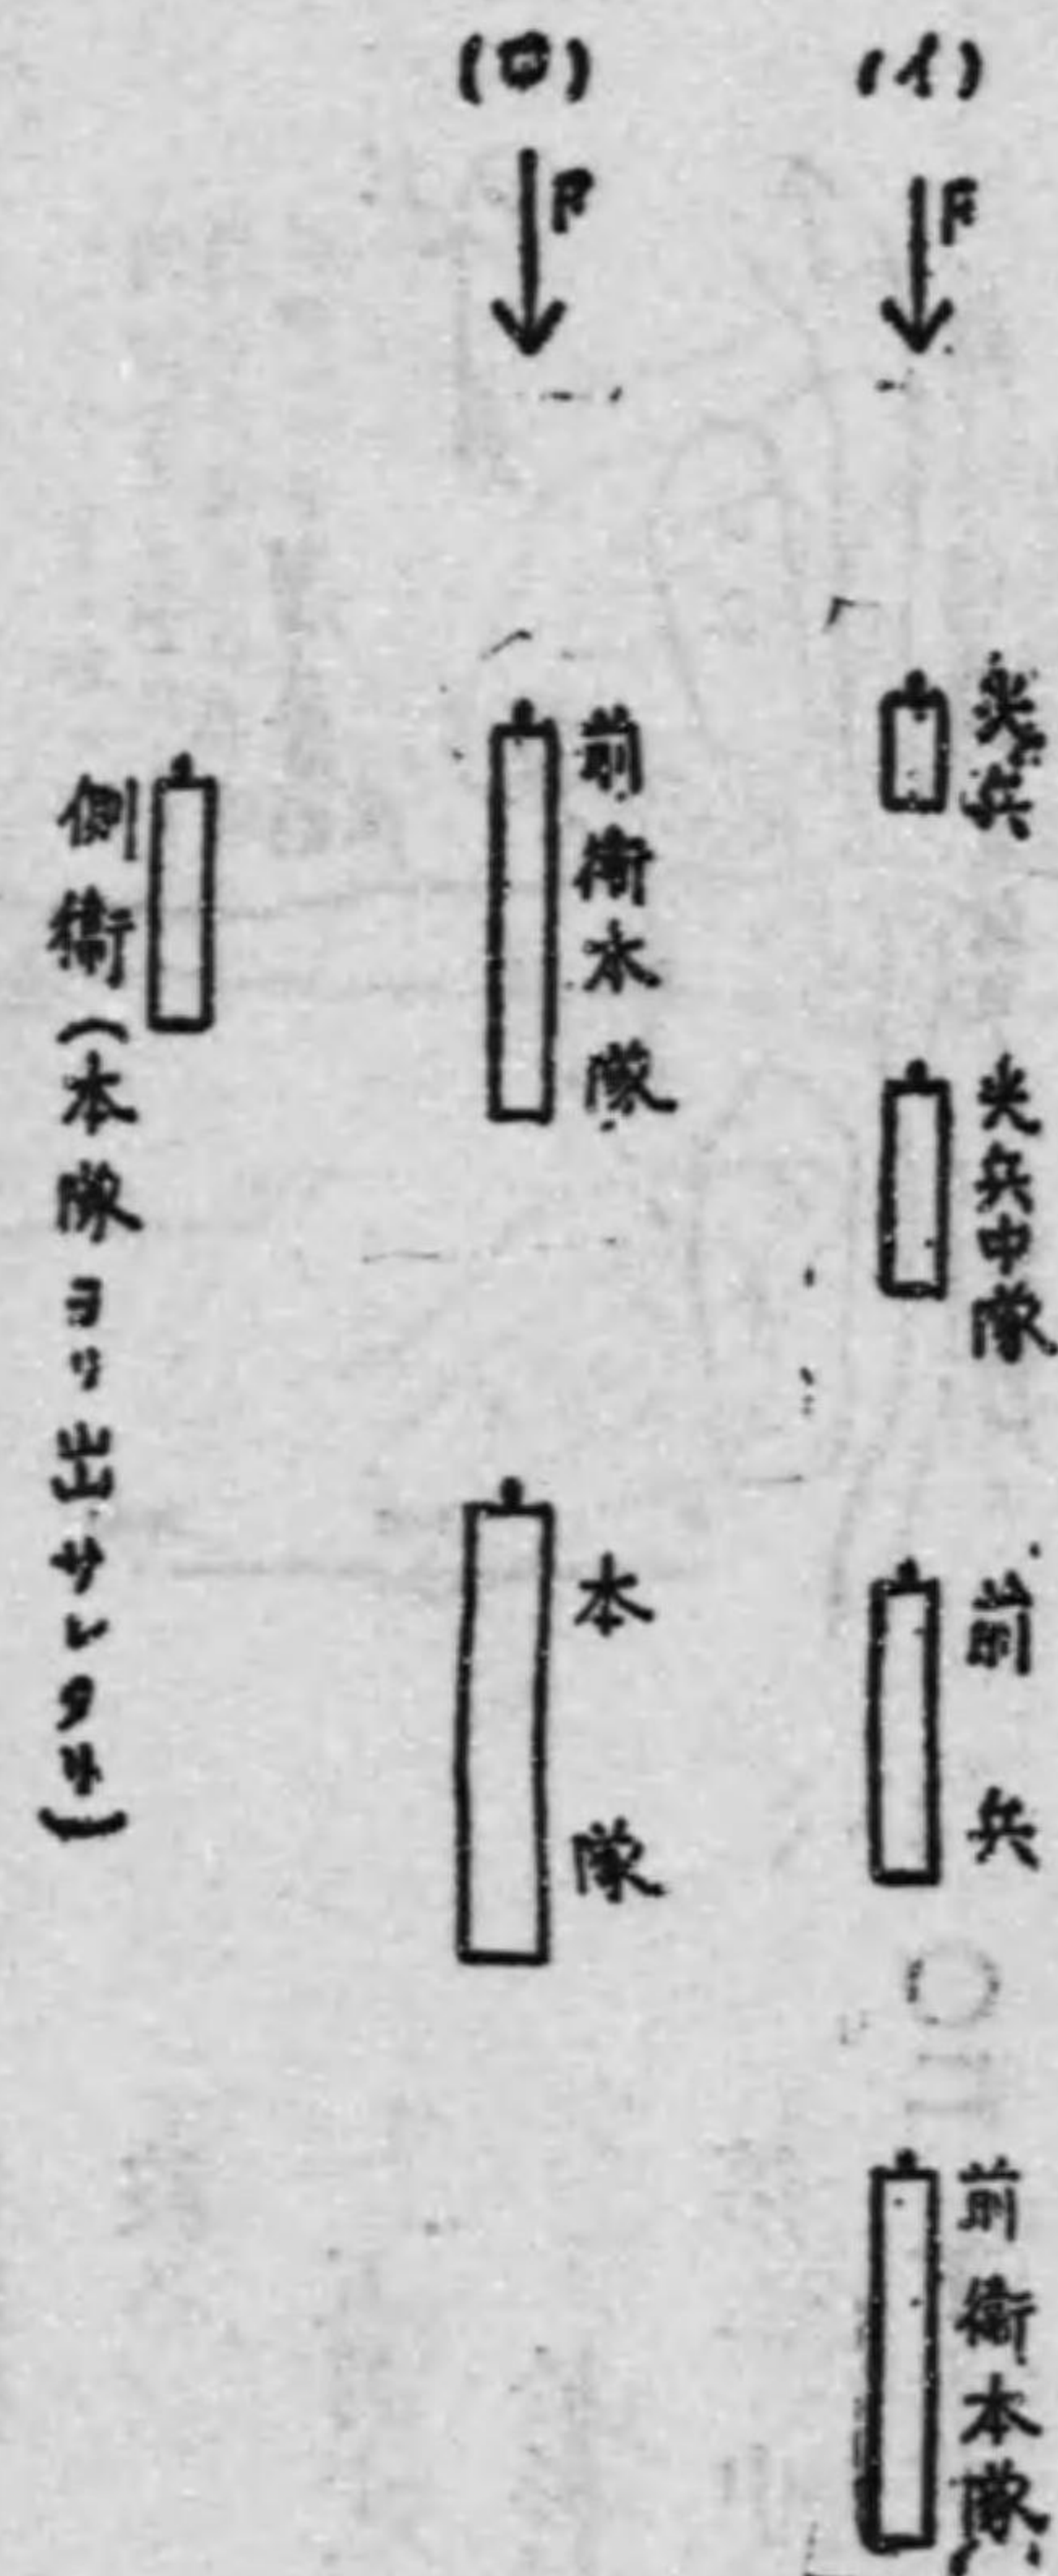 (イ)
F
尖兵
尖兵中隊
前兵
前衛本隊
(ロ)
F
前衛本隊
本隊
側衛(本隊ヨリ出サレタリ)